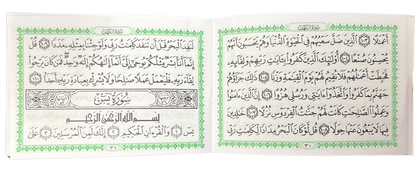 سورة الكهف
أَعْمَٰلًا ۝ الَّذِينَ ضَلَّ سَعْيُهُمْ فِي الْحَيَوٰةِ الدُّنْيَا وَهُمْ يَحْسَبُونَ أَنَّهُمْ
يُحْسِنُونَ صُنْعًا ۝ أُو۟لَٰئِكَ الَّذِينَ كَفَرُوا بِـَٔايَٰتِ رَبِّهِمْ وَلِقَائِهِ
فَحَبِطَتْ أَعْمَٰلُهُمْ فَلَا نُقِيمُ لَهُمْ يَوْمَ الْقِيَٰمَةِ وَزْنًا ۝ ذَٰلِكَ جَزَاؤُهُمْ
جَهَنَّمُ بِمَا كَفَرُوا وَاتَّخَذُوا ءَايَٰتِي وَرُسُلِي هُزُوًا ۝ إِنَّ الَّذِينَ ءَامَنُوا
وَعَمِلُوا الصَّٰلِحَٰتِ كَانَتْ لَهُمْ جَنَّٰتُ الْفِرْدَوْسِ نُزُلًا ۝ خَٰلِدِينَ
فِيهَا لَا يَبْغُونَ عَنْهَا حِوَلًا ۝ قُل لَّوْ كَانَ الْبَحْرُ مِدَادًا لِّكَلِمَٰتِ رَبِّي
٣٠
سورة الكهف
لَنَفِدَ الْبَحْرُ قَبْلَ أَن تَنفَدَ كَلِمَٰتُ رَبِّي وَلَوْ جِئْنَا بِمِثْلِهِ مَدَدًا ۝ قُلْ
إِنَّمَا أَنَا۠ بَشَرٌ مِّثْلُكُمْ يُوحَىٰ إِلَيَّ أَنَّمَا إِلَٰهُكُمْ إِلَٰهٌ وَٰحِدٌ فَمَن كَانَ يَرْجُوا
لِقَاءَ رَبِّهِ فَلْيَعْمَلْ عَمَلًا صَٰلِحًا وَلَا يُشْرِكْ بِعِبَادَةِ رَبِّهِ أَحَدًا ۝
سُورَةُ يسٓ
بِسْمِ اللَّهِ الرَّحْمَٰنِ الرَّحِيمِ
يسٓ ۝ وَالْقُرْءَانِ الْحَكِيمِ ۝ إِنَّكَ لَمِنَ الْمُرْسَلِينَ ۝ عَلَىٰ
٣١